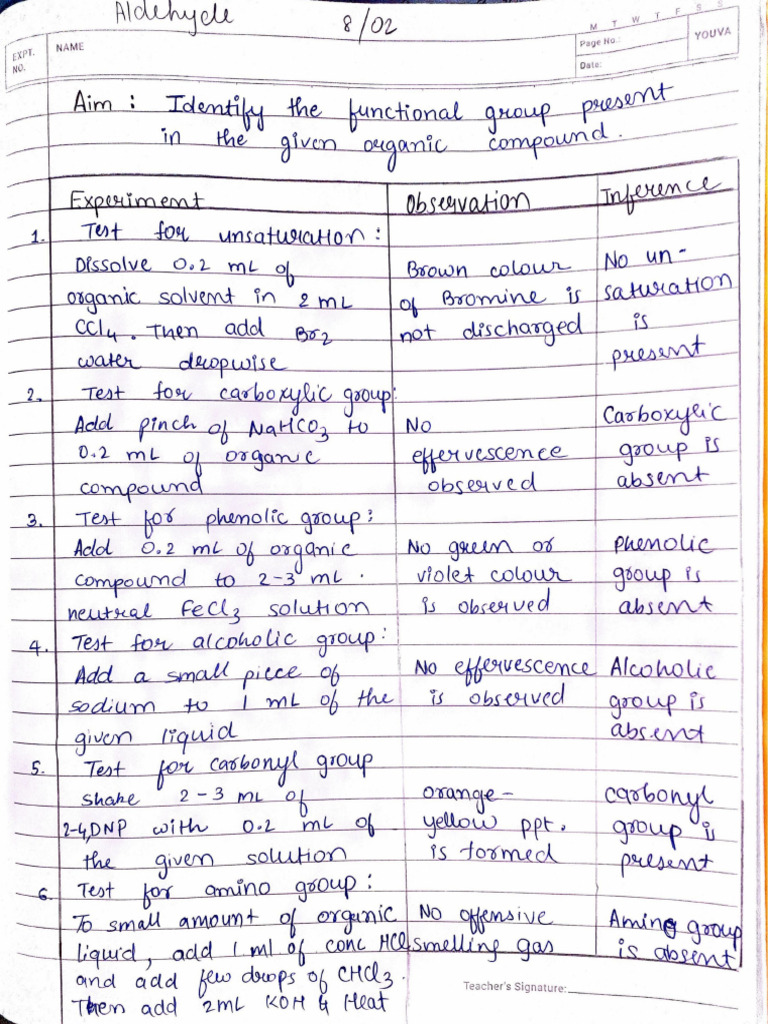 Aldehyde 8/02
M T W T F S S
EXPT. NO. NAME Page No.: YOUVA
Date:
Aim : Identify the functional group present
in the given organic compound.
Experiment Observation Inference
1. Test for unsaturation :
Dissolve 0.2 mL of Brown colour No un-
organic solvent in 2 mL of Bromine is saturation
CCl4. Then add Br2 not discharged is
water dropwise present
2. Test for carboxylic group:
Add pinch of NaHCO3 to No Carboxylic
0.2 mL of organic effervescence group is
compound observed absent
3. Test for phenolic group:
Add 0.2 mL of organic No green or Phenolic
compound to 2-3 mL. violet colour group is
neutral FeCl3 solution is observed absent
4. Test for alcoholic group:
Add a small piece of No effervescence Alcoholic
sodium to 1 mL of the is observed group is
given liquid absent
5. Test for carbonyl group
shake 2-3 mL of orange- carbonyl
2-4,DNP with 0.2 mL of yellow ppt. group is
the given solution is formed present
6. Test for amino group:
To small amount of organic No offensive Amino group
liquid, add 1 ml of conc HCl, smelling gas is absent
and add few drops of CHCl3.
Then add 2mL KOH & Heat
Teacher's Signature: